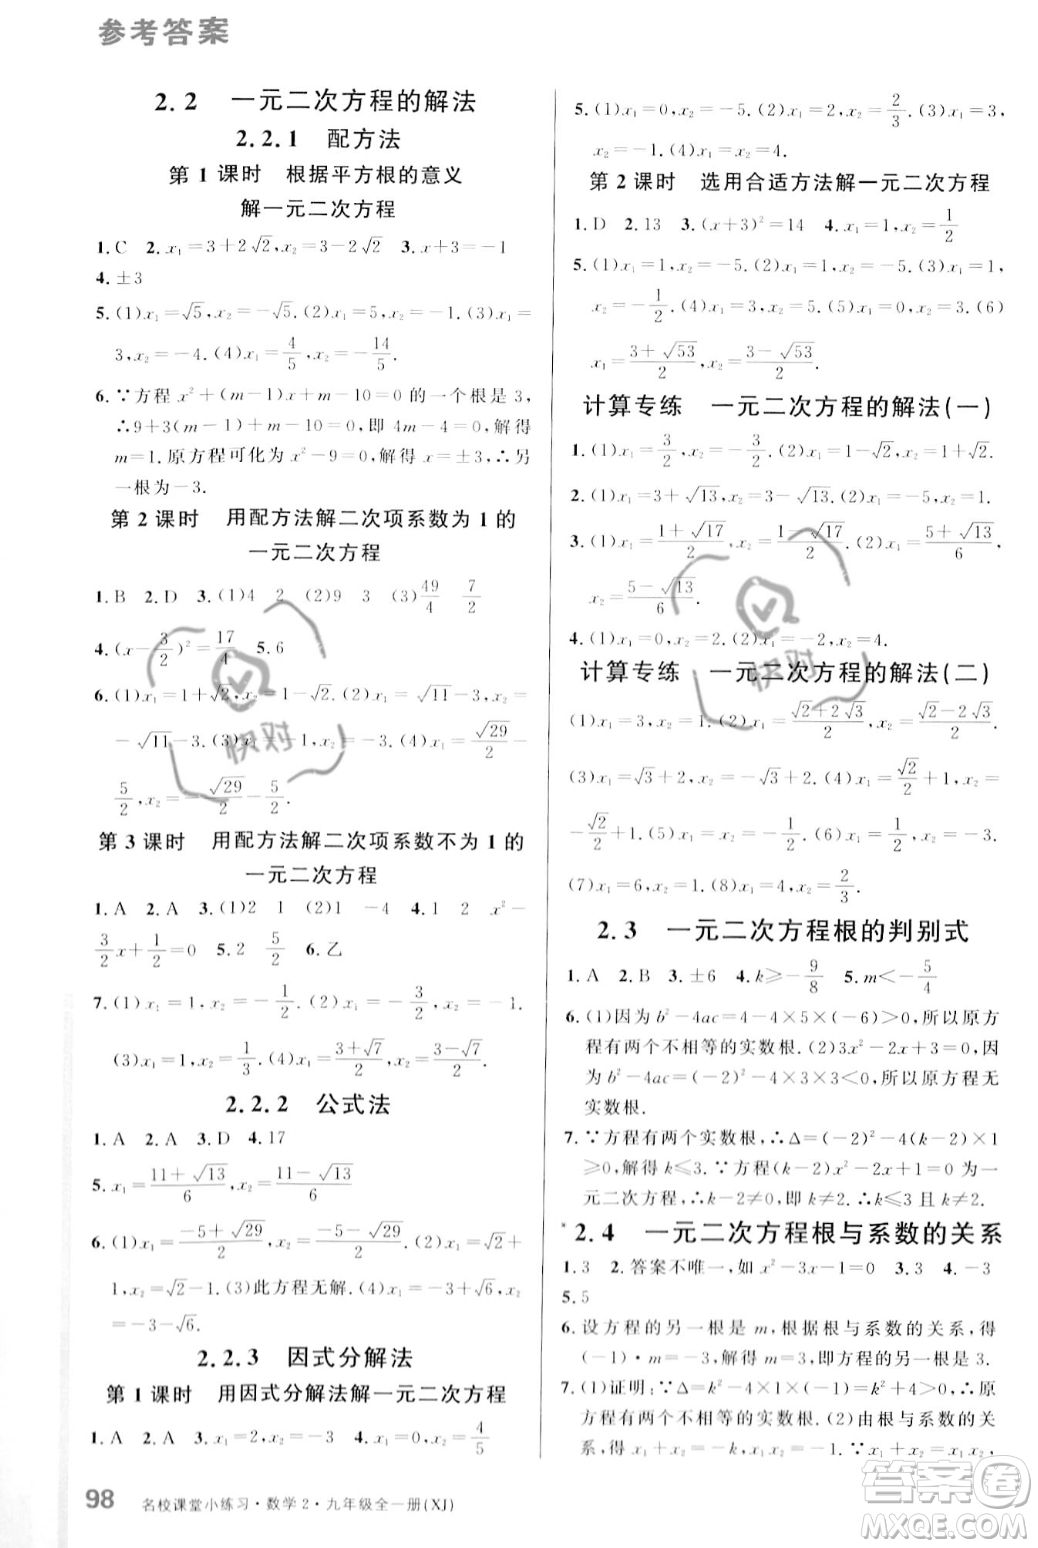 参考答案
2.2 一元二次方程的解法
2.2.1 配方法
第1课时 根据平方根的意义
解一元二次方程
1.C 2.x₁=3+2√2,x₂=3-2√2 3.x+3=-1
4.±3
5.(1)x₁=√5,x₂=-√5.(2)x₁=1,x₂=-1.(3)x₁=
3,x₂=-4.(4)x₁=4/5,x₂=-14/5.
6.∵方程 x²+(m-1)x+m-10=0的一个根是3,
∴9+3(m-1)+m-10=0,即4m-4=0,解得
m=1.原方程可化为x²-9=0,解得x=±3,∴另
一根为-3.
第2课时 用配方法解二次项系数为1的
一元二次方程
1.B 2.D 3.(1)4 2 (2)9 3 (3)49/4 7/2
4.(x-3/2)²=17/4 5.6
6.(1)x₁=1+√2,x₂=1-√2.(2)x₁=√11-3,x₂=
-√11-3.(3)x₁=-1,x₂=3.(4)x₁=√29/2-
5/2,x₂=-√29/2-5/2.
第3课时 用配方法解二次项系数不为1的
一元二次方程
1.A 2.A 3.(1)2 1 (2)1 -4 4.1 2 x²-
3/2x+1/2=0 5.2 6.乙
7.(1)x₁=1,x₂=-1/2.(2)x₁=-3/2,x₂=-1.
(3)x₁=1,x₂=1/3.(4)x₁=(3+√7)/2,x₂=(3-√7)/2.
2.2.2 公式法
1.A 2.A 3.D 4.17
5.x₁=(11+√13)/6,x₂=(11-√13)/6
6.(1)x₁=(-5+√29)/2,x₂=(-5-√29)/2.(2)x₁=√2+
1,x₂=√2-1.(3)此方程无解.(4)x₁=-3+√6,x₂=
-3-√6.
2.2.3 因式分解法
第1课时 用因式分解法解一元二次方程
1.A 2.A 3.x₁=2,x₂=3 4.x₁=0,x₂=4/5
98 名校课堂小练习·数学2·九年级全一册(XJ)
5.(1)x₁=0,x₂=-5.(2)x₁=2,x₂=2/3.(3)x₁=3,
x₂=-1.(4)x₁=-3,x₂=4.
第2课时 选用合适方法解一元二次方程
1.D 2.13 3.(x+3)²=14 4.x₁=1,x₂=1/2
5.(1)x₁=1,x₂=-5.(2)x₁=5,x₂=1.(3)x₁=1,
x₂=-1/2.(4)x₁=-2,x₂=0.(5)x₁=x₂=3.(6)
x₁=(3+√53)/2,x₂=(3-√53)/2.
计算专练 一元二次方程的解法(一)
1.(1)x₁=3/2,x₂=-3/2.(2)x₁=1+√2,x₂=1-√2.
2.(1)x₁=3+√13,x₂=3-√13.(2)x₁=x₂=1.
3.(1)x₁=(1+√17)/2,x₂=(1-√17)/2.(2)x₁=(5+√13)/6,
x₂=(5-√13)/6.
4.(1)x₁=0,x₂=4.(2)x₁=-2,x₂=4.
计算专练 一元二次方程的解法(二)
(1)x₁=3,x₂=1.(2)x₁=(√2+2√3)/2,x₂=(√2-2√3)/2.
(3)x₁=√3+2,x₂=-√3+2.(4)x₁=√2/2+1,x₂=
-√2/2+1.(5)x₁=1,x₂=-1/2.(6)x₁=1,x₂=-3.
(7)x₁=6,x₂=1.(8)x₁=4,x₂=2/3.
2.3 一元二次方程根的判别式
1.A 2.B 3.±6 4.k≥-9/8 5.m<-5/4
6.(1)因为b²-4ac=4-4×5×(-6)>0,所以原方
程有两个不相等的实数根.(2)3x²-2x+3=0,因
为b²-4ac=4-4×3×3<0,所以原方程无
实数根.
7.∵方程有两个实数根,∴Δ=(-2)²-4(k-2)×1
≥0,解得k≤3.∵方程(k-2)x²-2x+1=0是一
元二次方程,∴k-2≠0,即k≠2.∴k≤3且k≠2.
2.4 一元二次方程根与系数的关系
1.3 2.答案不唯一,如x²-3x-1=0 3.3 4.-3
5.5
6.设方程的另一根是m,根据根与系数的关系,得
(-1)·m=-3,解得m=3,即方程的另一根是3.
7.(1)证明:∵Δ=k²-4×1×(-1)=k²+4>0,∴原
方程有两个不相等的实数根.(2)由根与系数的关
系,得x₁+x₂=-k,x₁x₂=-1.∵x₁+x₂=x₁x₂,
快对
快对
作业精灵